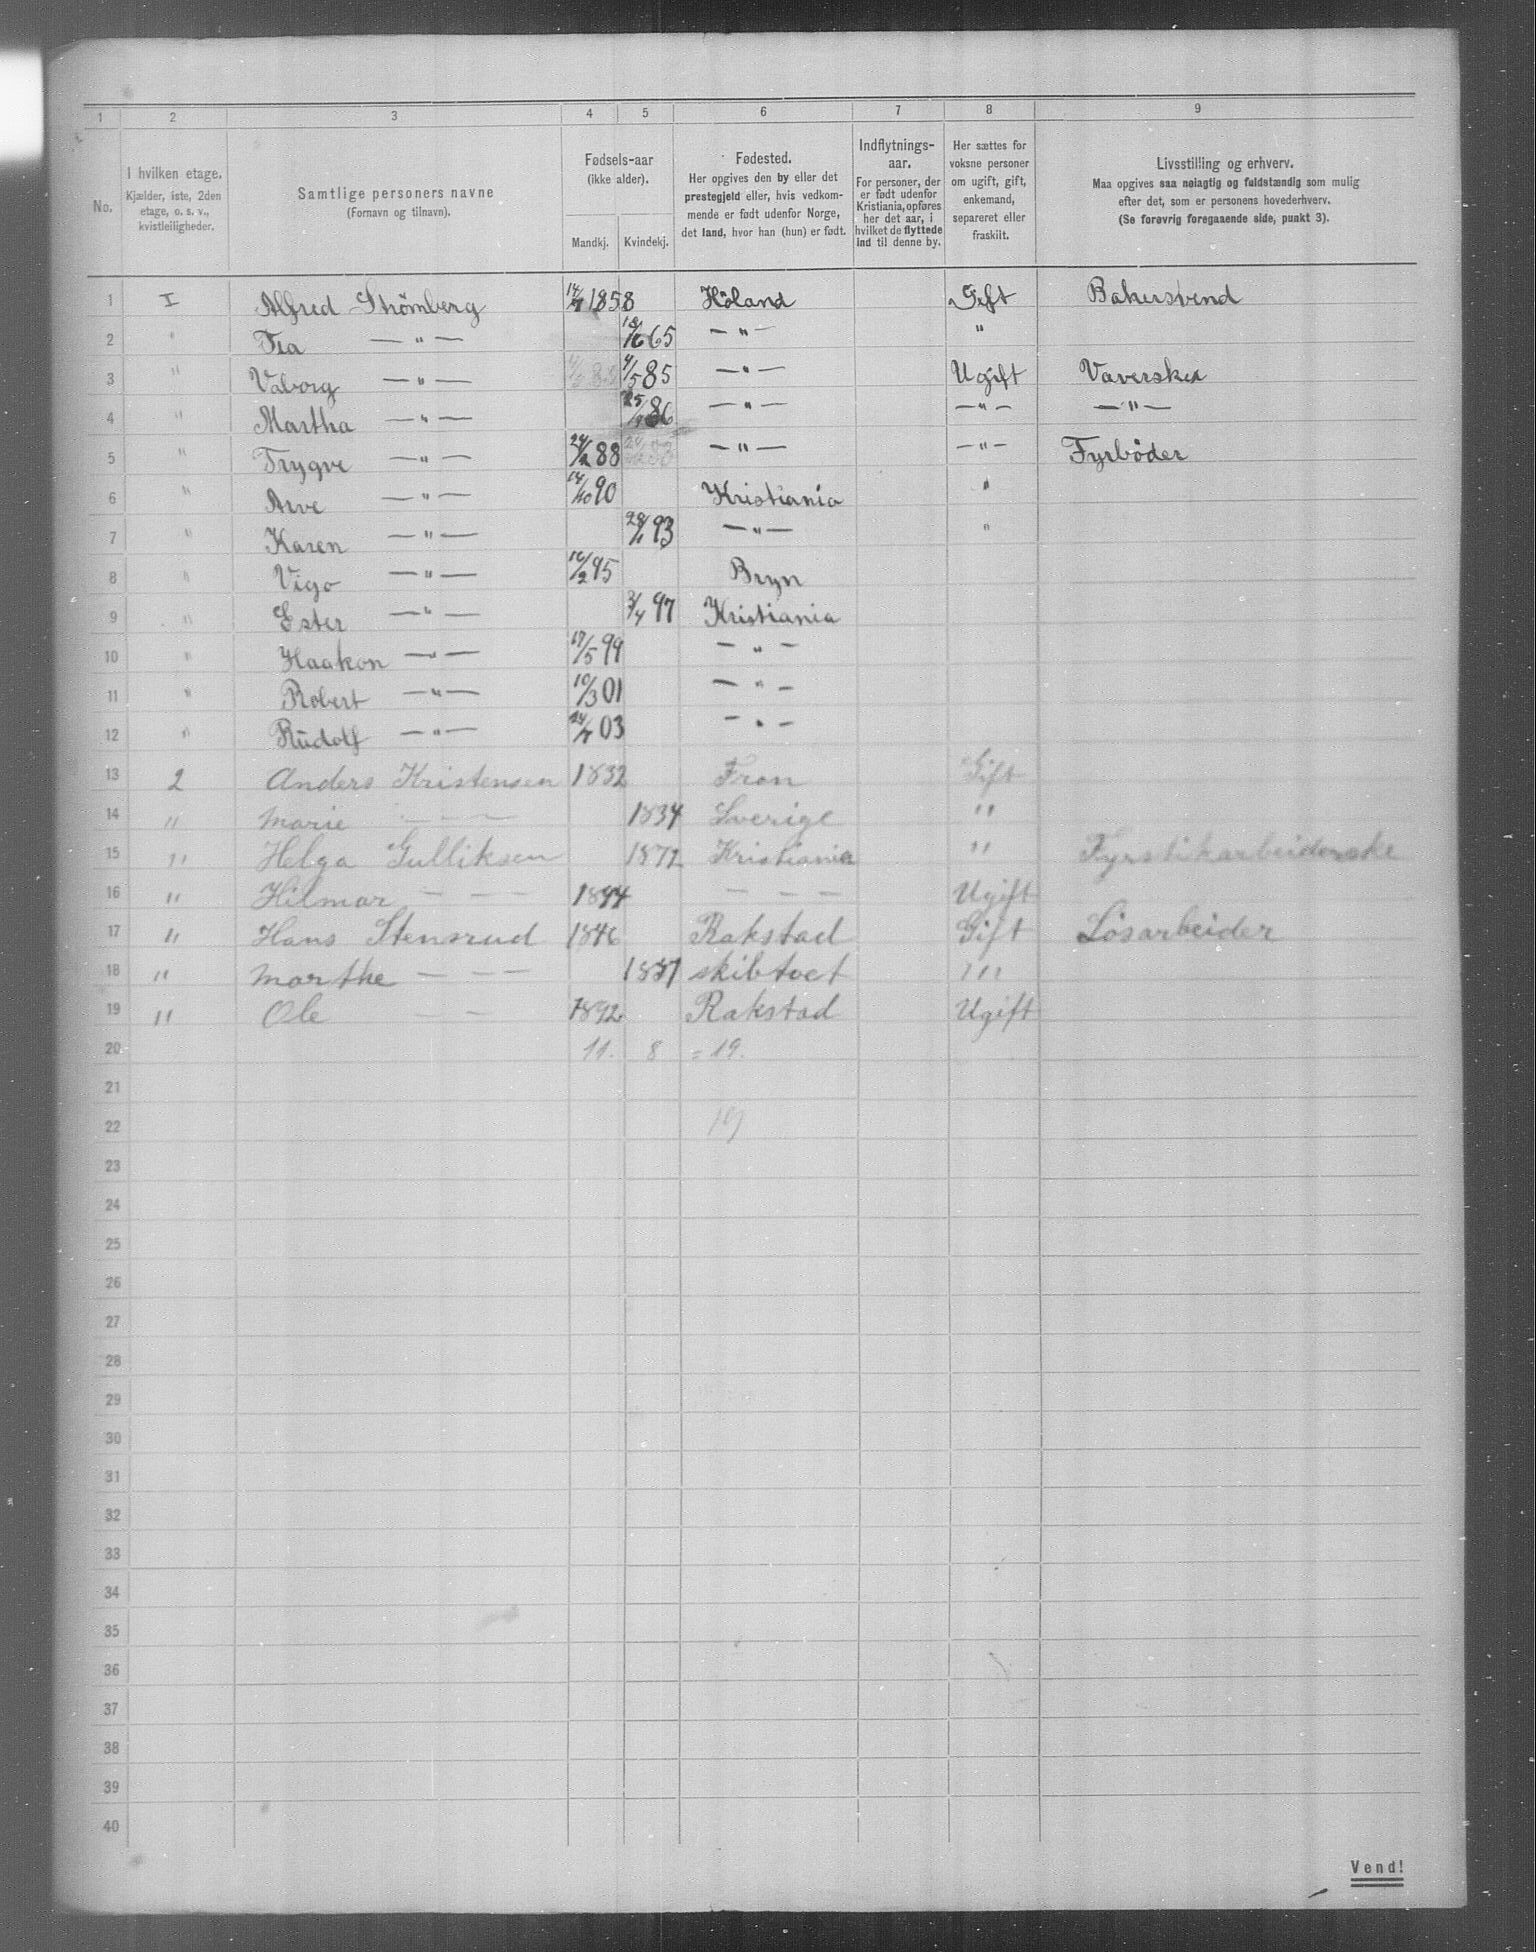 1 2 3 4 5 6 7 8 9
No. | I hvilken etage. Kjælder, 1ste, 2den etage, o. s. v., kvistleiligheder. | Samtlige personers navne (Fornavn og tilnavn). | Fødsels-aar (ikke alder). Mandkj. | Kvindekj. | Fødested. Her opgives den by eller det prestegjeld eller, hvis vedkommende er født udenfor Norge, det land, hvor han (hun) er født. | Indflytnings-aar. For personer, der er født udenfor Kristiania, opføres her det aar, i hvilket de flyttede ind til denne by. | Her sættes for voksne personer om ugift, gift, enkemand, separeret eller fraskilt. | Livsstilling og erhverv. Maa opgives saa nøiagtig og fuldstændig som mulig efter det, som er personens hovederhverv. (Se forøvrig foregaaende side, punkt 3).
1 I Alfred Strömberg 14/7 1858 Höland Gift Bakersvend
2 " Fia — " — 18/6 65 — " — "
3 " Valborg — " — 4/5 85 — " — Ugift Vaverske
4 " Martha — " — 25/ 86 — " — — " — — " —
5 " Trygve — " — 24/2 88 — " — — " — Fyrböder
6 " Arve — " — 14/10 90 Kristiania "
7 " Karen — " — 28/ 93 — " — "
8 " Vigo — " — 16/2 95 Bryn
9 " Ester — " — 3/4 97 Kristiania
10 " Haakon — " — 17/5 99 — " —
11 " Robert — " — 10/3 01 — " —
12 " Rudolf — " — 24/7 03 — " —
13 2 Anders Kristensen 1832 Fron Gift
14 " Marie — — — 1834 Sverige "
15 " Helga Gulliksen 1872 Kristiania " Fyrstikarbeiderske
16 " Hilmar — — 1894 — — — Ugift
17 " Hans Stensrud 1846 Rakstad Gift Lösarbeider
18 " Marthe — — — 1837 skibtvet "
19 " Ole — — 1892 Rakstad Ugift
20 11. 8 = 19.
21
22 19
23
24
25
26
27
28
29
30
31
32
33
34
35
36
37
38
39
40
Vend!